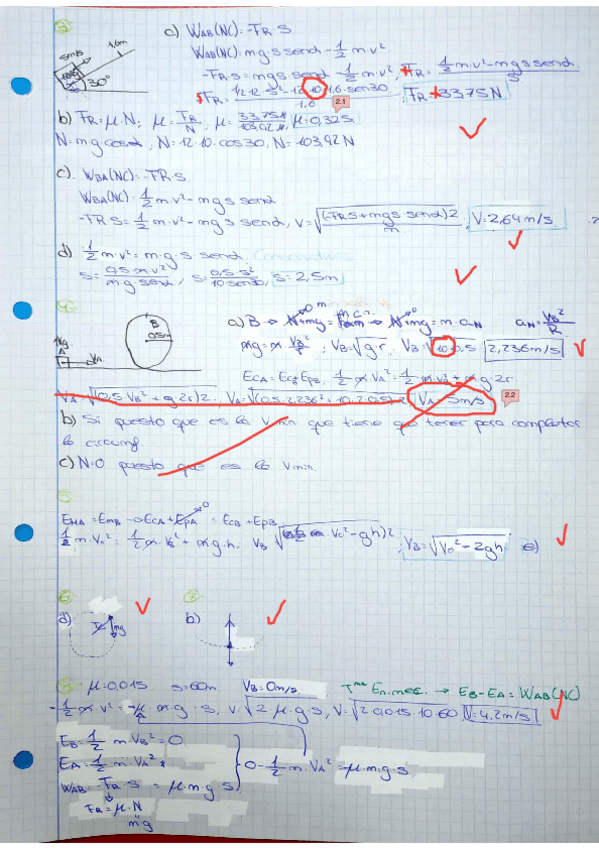 3)
c) WAB(NC) = -FR·S
1,6m
5m/s
WAB(NC) = m·g·s senα - 1/2 m·v²
30°
-FR·s = m·g·s senα - 1/2 m·v², FR = (1/2 m·v² - m·g·s senα)/s
10
1.6
FR = 33,75N
2.1
b) FR = μ·N; μ = FR/N, μ = 33,75N/103,92N, μ = 0,325
N = m·g·cosα, N = 12·10·cos30, N = 103,92N
c) WBA(NC) = -FR·S
WBA(NC) = 1/2 m·v² - m·g·s senα
-FR·S = 1/2 m·v² - m·g·s senα, v = √((-FR·S + m·g·s senα)2/m), V = 2,64 m/s
d) 1/2 m·v² = m·g·s·senα
S = 0,5·m·v²/m·g·senα, S = 0,5·5²/10·sen30, S = 2,5m
4)
B
0.5m
A
VA
a) B → N + mg = m·an → N + mg = m·aN
aN = VB²/R
mg = m VB²/r; VB = √g·r, VB = √10·0,5 2,236m/s
ECA = ECB + EPB, 1/2 m·VA² = 1/2 m·VB² + m·g·2r
VA = √(0,5·VB² + g·2r)2, VA = √(0,5·2,236² + 10·2·0,5)·2 VA = 5m/s
2.2
b) Sí puesto que es la Vmin que tiene que tener para completar
la circumf.
c) NO puesto que es la Vmin.
5
EMA = EMB → ECA + EPA = ECB + EPB
0
1/2 m·V0² = 1/2 m·VB² + m·g·h, VB √(V0² - gh)2, VB = √V0² - 2gh e)
6
7
a)
T
mg
b)
μ = 0,015 s = 60m VB = 0m/s Tma En. mec. → EB - EA = WAB(NC)
-1/2 m·v² = -μ·m·g·s, V = √2·μ·g·s, V = √2·0,015·10·60 V = 4,2m/s
EB = 1/2 m·VB² = 0
EA = 1/2 m·VA²
0 - 1/2 m·VA² = -μ·m·g·s
WAB = -FR·S = μ·m·g·s
FR = μ·N
m·g